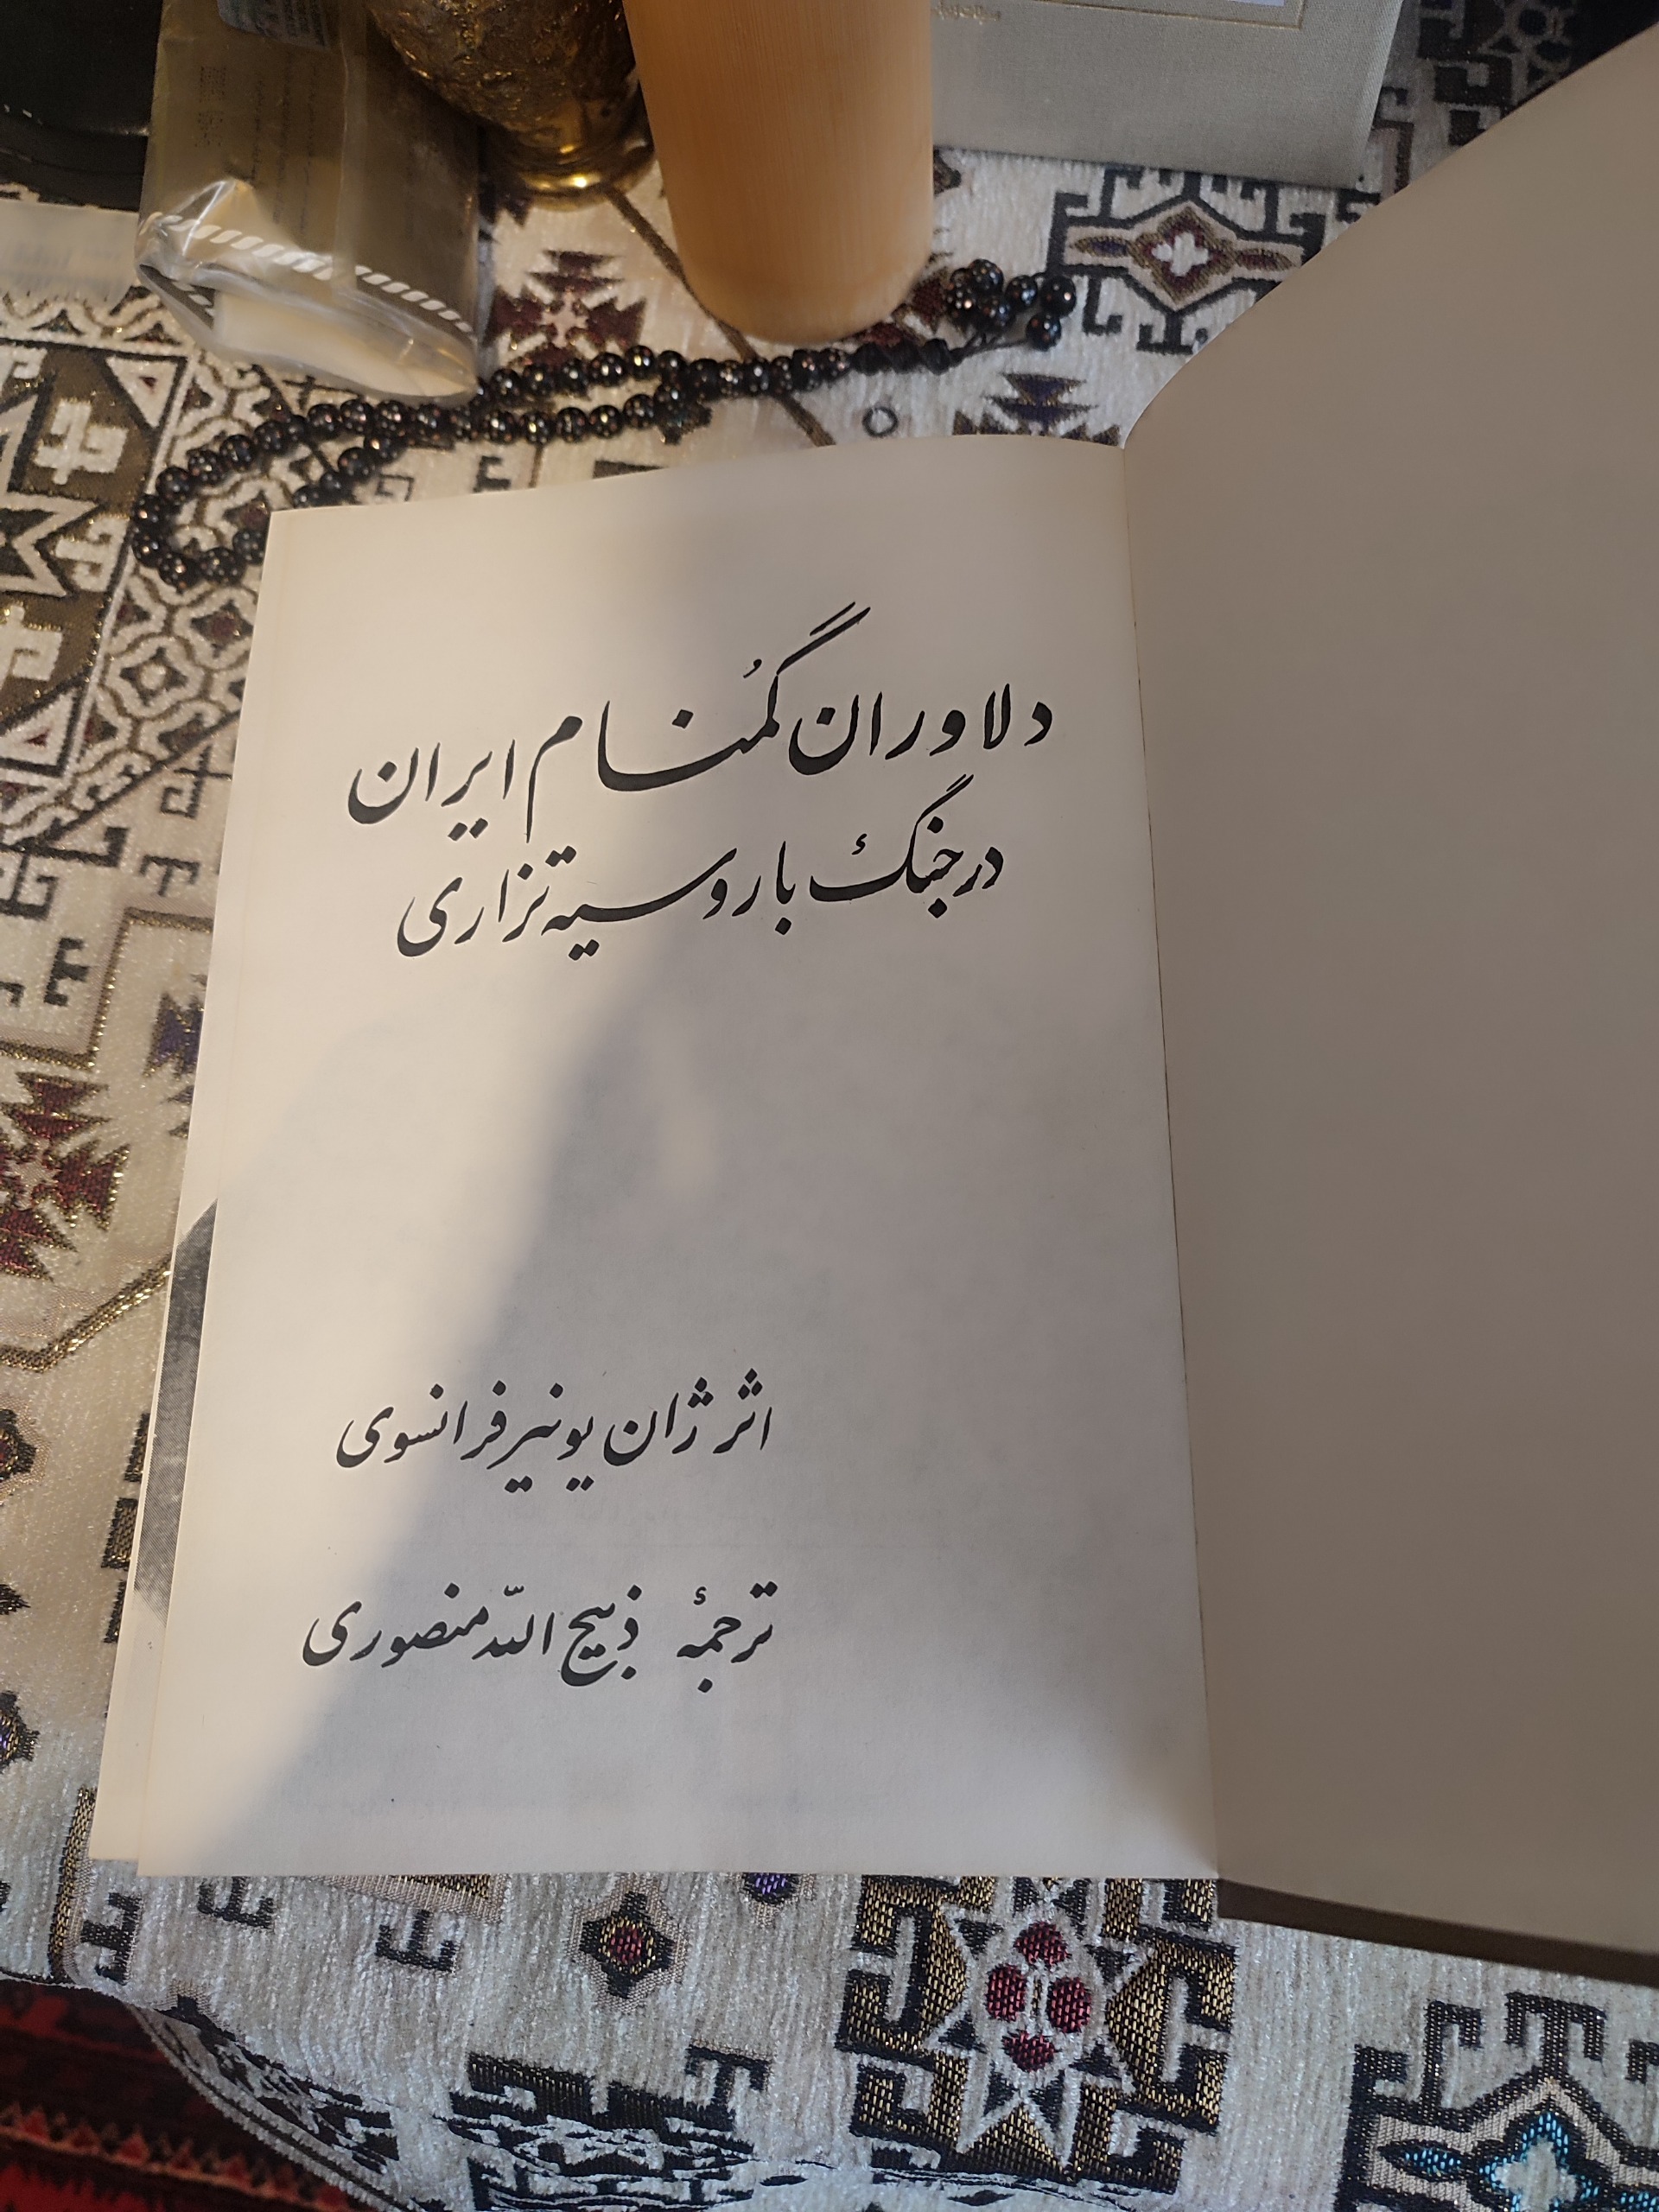 دلاوران گمُنام ایران
در جنگ با روسیه تزاری
اثر ژان یونیر فرانسوی
ترجمهٔ ذبیح اللّه منصوری